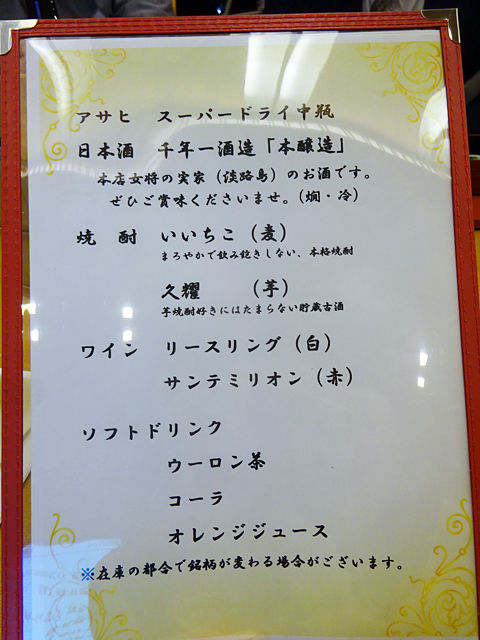 アサヒ スーパードライ中瓶
日本酒 千年一酒造「本醸造」
本店女将の実家（淡路島）のお酒です。
ぜひご賞味くださいませ。（燗・冷）
焼酎 いいちこ（麦）
まろやかで飲み飽きしない、本格焼酎
久耀 （芋）
芋焼酎好きにはたまらない貯蔵古酒
ワイン リースリング（白）
サンテミリオン（赤）
ソフトドリンク
ウーロン茶
コーラ
オレンジジュース
※在庫の都合で銘柄が変わる場合がございます。